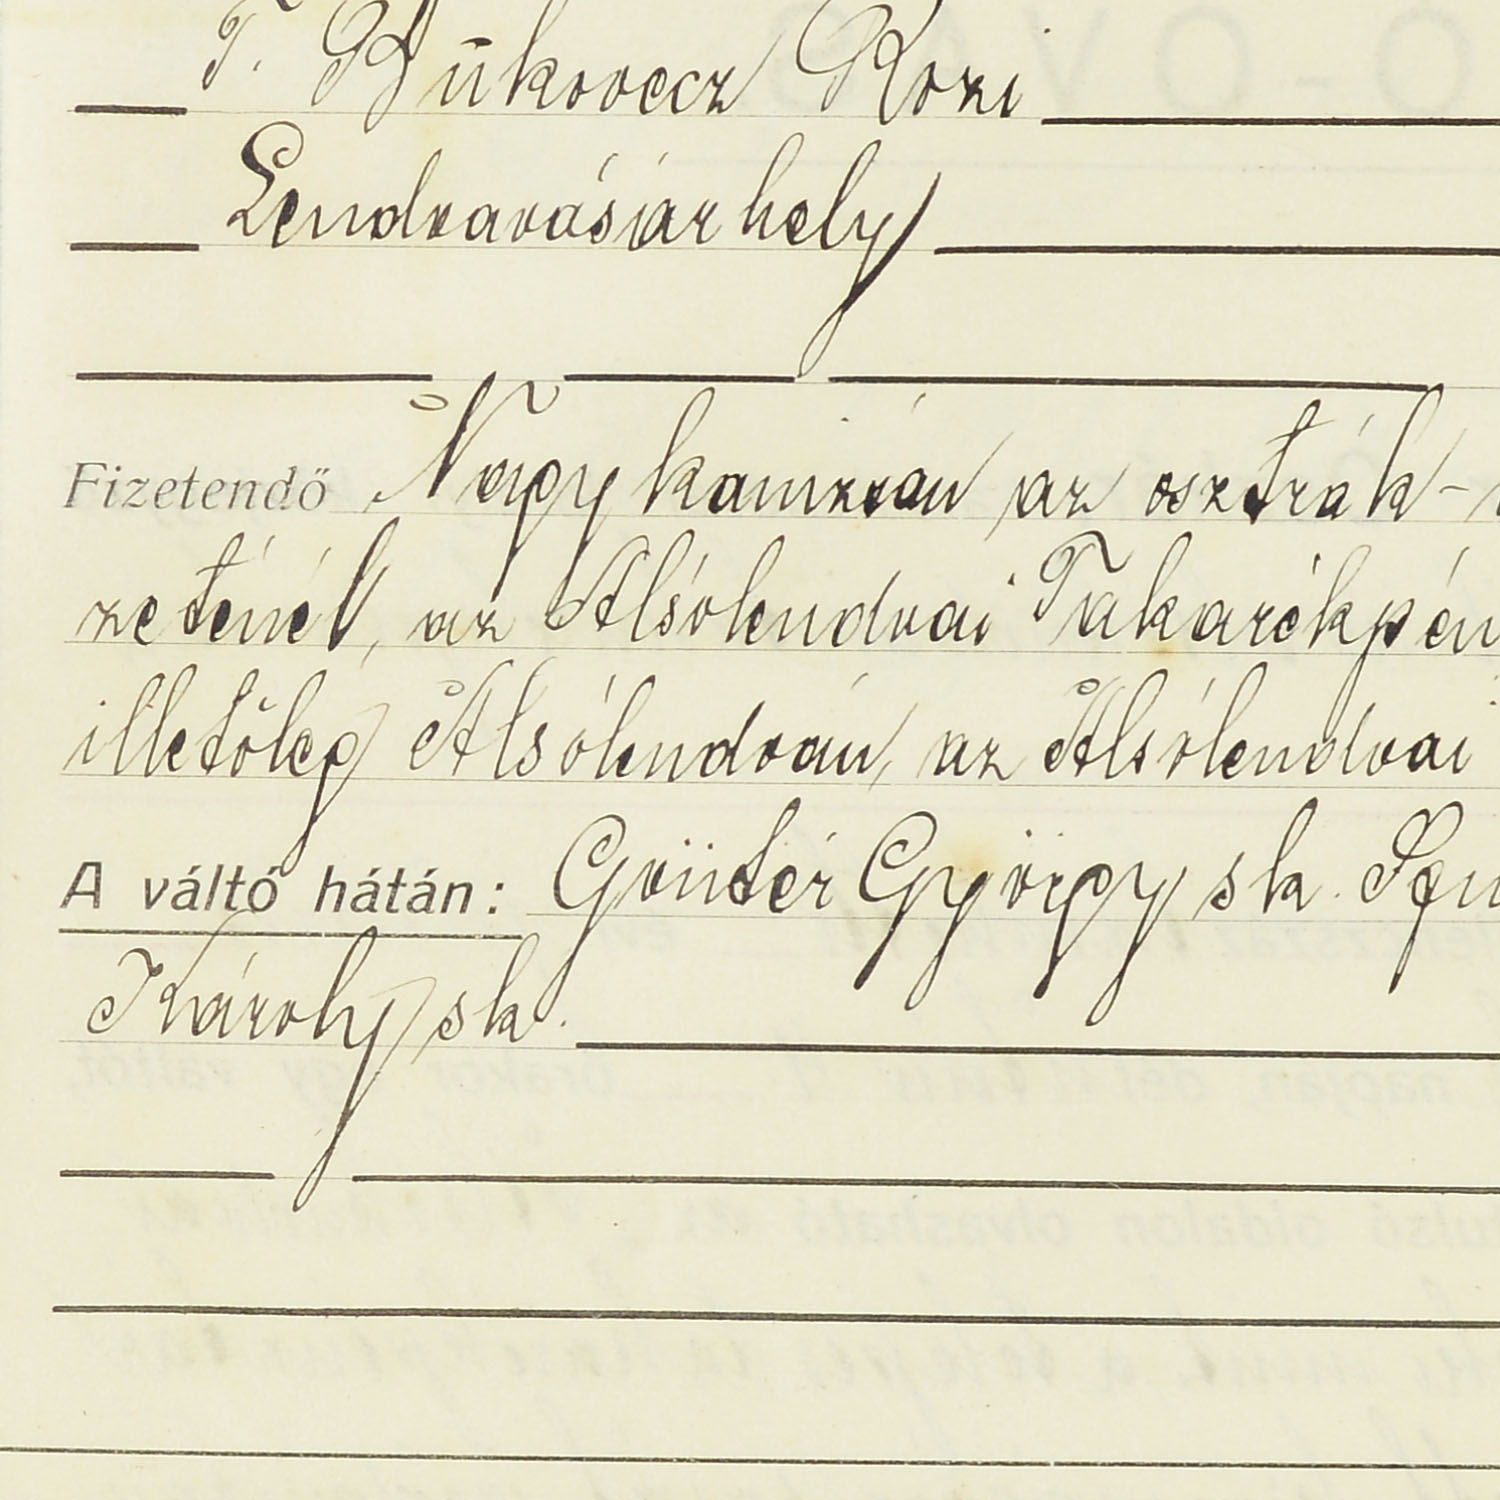 T. Bukovecz Rozi
Lendvavásárhely
Fizetendő Nagykanizsán az osztrák-
zeténél, az Alsólendvai Takarékpén
illetőleg Alsólendván, az Alsólendvai
A váltó hátán: Göntér György sk.
Károly sk.